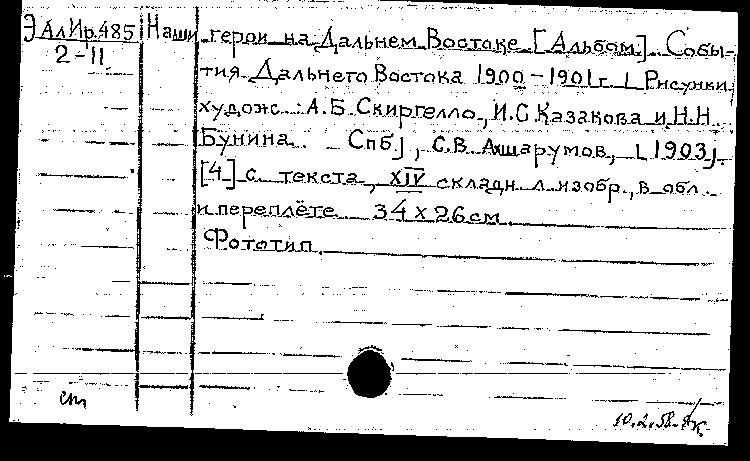 ЭАлИр.485 Наши герои на Дальнем Востоке [Альбом]. Собы-
2-11 тия Дальнего Востока 1900-1901г. [ Рисунки
худож.: А.Б.Скиргелло, И.С.Казакова и Н.Н.
Бунина. Спб], С.В. Ашарумов, [1903].
[4] с. текста, XIV складн. л. изобр., в обл.
и переплёте 34 x 26 см.
Фототип.
10.2.58.